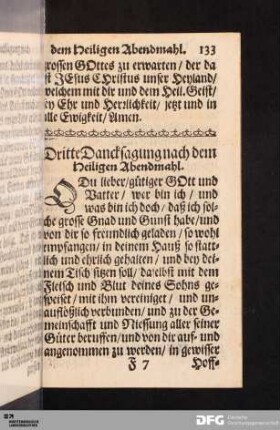 dem Heiligen Abendmahl. 133
grossen GOttes zu erwarten / der da
ist JEsus CHristus unser Heyland/
welchem mit dir und dem Heil. Geist/
sey Ehr und Herrlichkeit/ jetzt und in
alle Ewigkeit/ Amen.
Dritte Dancksagung nach dem
Heiligen Abendmahl.
O Du lieber/ gütiger GOtt und
Vatter / wer bin ich / und
was bin ich doch/ daß ich sol-
che grosse Gnad und Gunst habe/ und
von dir so freundlich geladen / so wohl
empfangen/ in deinem Hauß so statt-
lich und ehrlich gehalten / und bey dei-
nem Tisch sitzen soll/ daselbst mit dem
Fleisch und Blut deines Sohns ge-
speiset/ mit ihm vereiniget / und un-
auflößlich verbunden/ und zu der Ge-
meinschafft und Niessung aller seiner
Güter beruffen/ und von dir auf- und
angenommen zu werden/ in gewisser
F 7 Hoff-
DFG